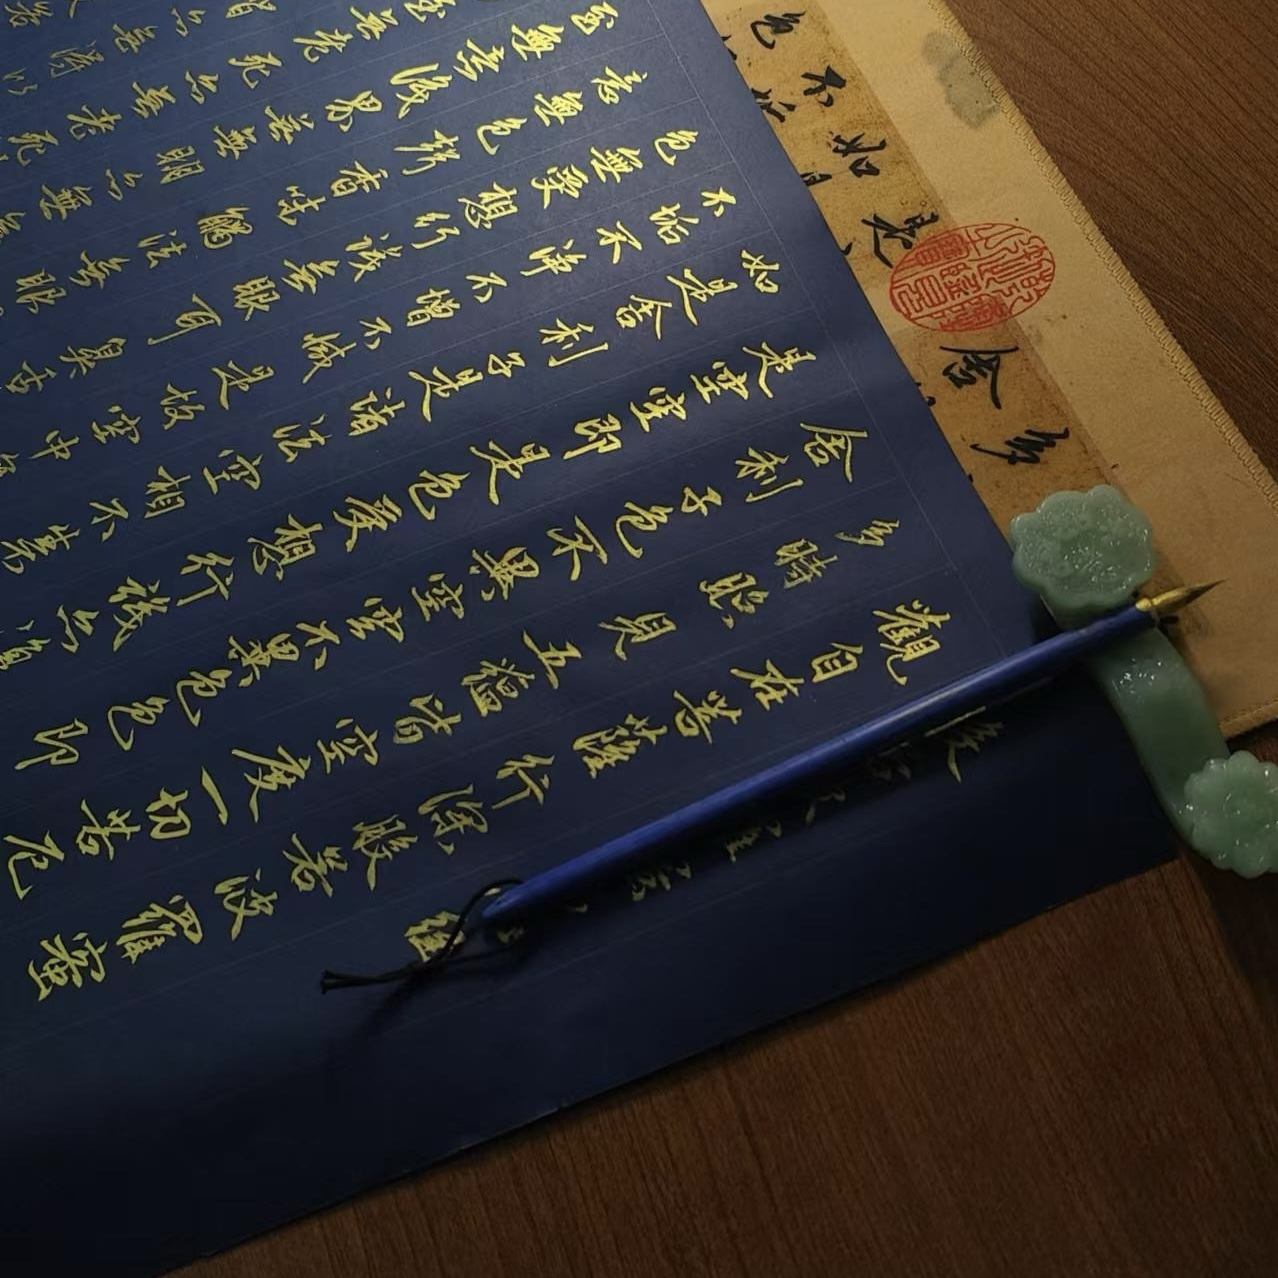 經
觀自在菩薩行深般若波羅蜜
多時照見五蘊皆空度一切苦厄
舍利子色不異空空不異色色即
是空空即是色受想行識亦復
如是舍利子是諸法空相不生
不垢不淨不增不減是故空中無
色無受想行識無眼耳鼻舌
意無色聲香味觸法無眼
至無意識界無無明亦無
無老死亦無老死
智亦無得以
多
舍
是
如
不
色